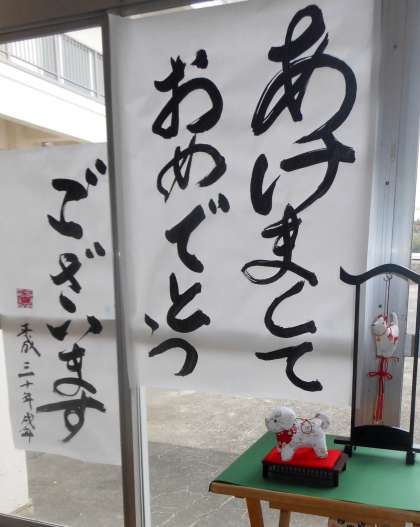 あけまして
おめでとう
ございます
平成三十年戌年